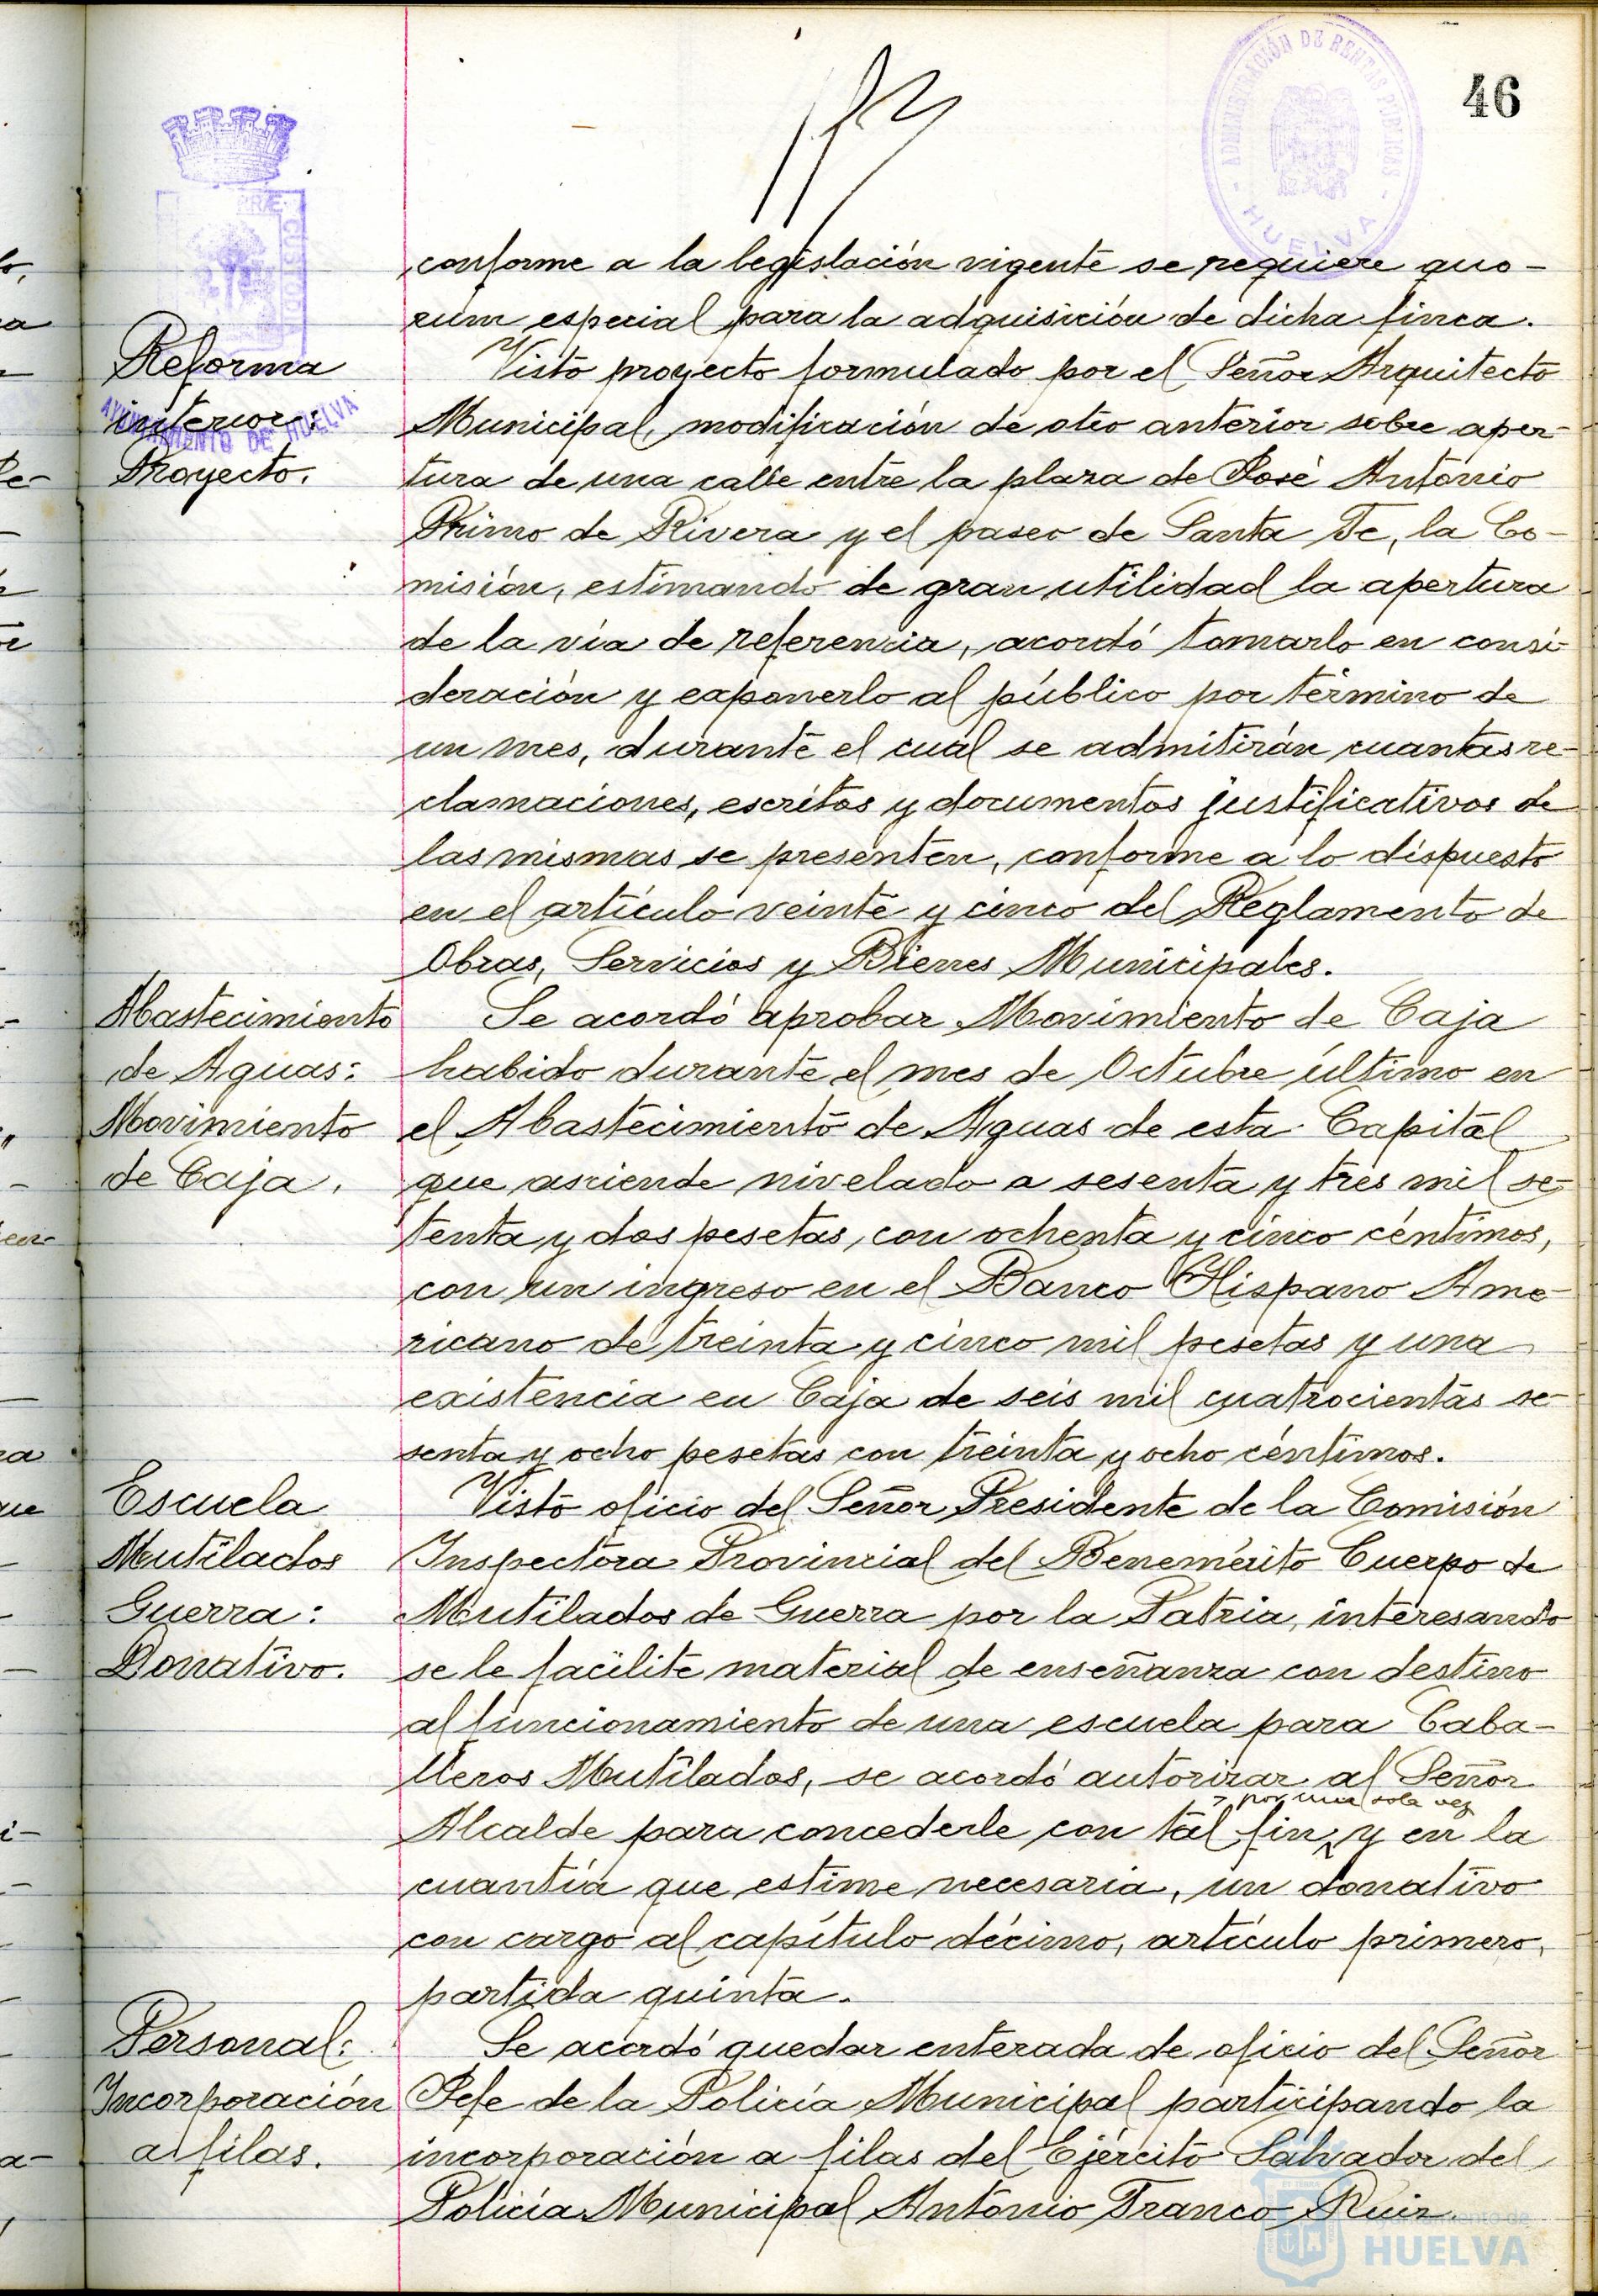 46
ADMINISTRACIÓN DE RENTAS PÚBLICAS
- HUELVA -
PRÆ CUSTODIA
AYUNTAMIENTO DE HUELVA
conforme a la legislación vigente se requiere quo-
rum especial para la adquisición de dicha finca.
Reforma
interior:
Proyecto.
Visto proyecto formulado por el Señor Arquitecto
Municipal, modificación de otro anterior sobre aper-
tura de una calle entre la plaza de José Antonio
Primo de Rivera y el paseo de Santa Fe, la Co-
misión, estimando de gran utilidad la apertura
de la vía de referencia, acordó tomarlo en consi-
deración y exponerlo al público por término de
un mes, durante el cual se admitirán cuantas re-
clamaciones, escritos y documentos justificativos de
las mismas se presenten, conforme a lo dispuesto
en el artículo veinte y cinco del Reglamento de
Obras, Servicios y Bienes Municipales.
Abastecimiento
de Aguas:
Movimiento
de Caja.
Se acordó aprobar Movimiento de Caja
habido durante el mes de Octubre último en
el Abastecimiento de Aguas de esta Capital
que asciende nivelado a sesenta y tres mil se-
tenta y dos pesetas, con ochenta y cinco céntimos,
con un ingreso en el Banco Hispano Ame-
ricano de treinta y cinco mil pesetas y una
existencia en Caja de seis mil cuatrocientas se-
senta y ocho pesetas con treinta y ocho céntimos.
Escuela
Mutilados
Guerra:
Donativo.
Visto oficio del Señor Presidente de la Comisión
Inspectora Provincial del Benemérito Cuerpo de
Mutilados de Guerra por la Patria, interesando
se le facilite material de enseñanza con destino
al funcionamiento de una escuela para Caba-
lleros Mutilados, se acordó autorizar al Señor
por una sola vez
Alcalde para concederle con tal fin, y en la
cuantía que estime necesaria, un donativo
con cargo al capítulo décimo, artículo primero,
partida quinta.
Personal:
Incorporación
a filas.
Se acordó quedar enterada de oficio del Señor
Jefe de la Policía Municipal participando la
incorporación a filas del Ejército Salvador del
Policía Municipal Antonio Franco Ruiz.
Ayuntamiento de
HUELVA